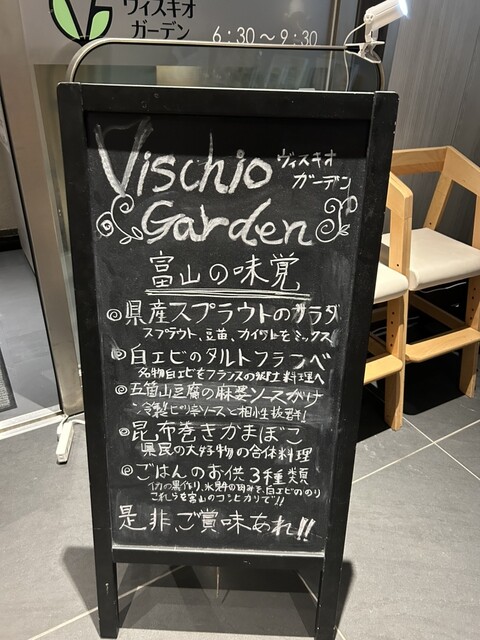 ヴィスキオ
ガーデン
6:30～9:30
Vischio ヴィスキオ
ガーデン
Garden
富山の味覚
◎県産スプラウトのサラダ
スプラウト、豆苗、カイワレをミックス
◎白エビのタルトフランベ
名物白エビをフランスの郷土料理へ
◎五箇山豆腐の麻婆ソースがけ
特製ピリ辛ソースと相性抜群!
◎昆布巻きかまぼこ
県民の大好物の合体料理
◎ごはんのお供3種類
イカの黒作り、水野の田みそ、白エビののり
これらを富山のコシヒカリで!!
是非、ご賞味あれ!!